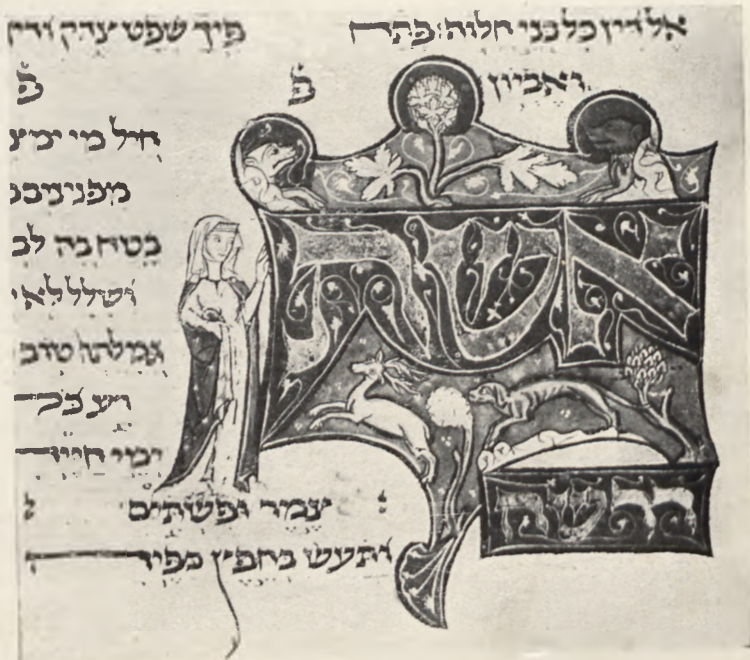 אל דין כל בני חלוף: פתח פיך שפט צדק ודין
ואביון פ פ
אשת
חיל מי ימצ
בטח בה לב
ושלל לא י
גמלתהו טוב
כל
ימי חייה
דרשה
צמר ופשתים
ותעש בחפץ כפיה